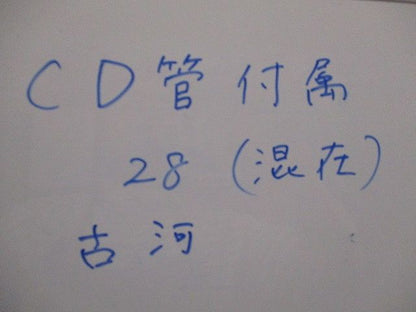 CD管付属
28(混在)
古河